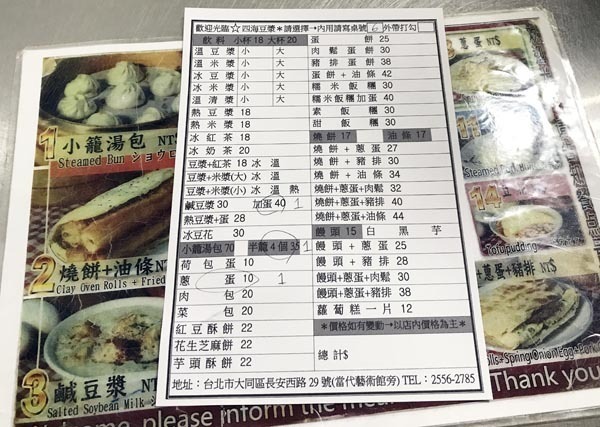 歡迎光臨☆四海豆漿＊請選擇→內用請寫桌號 6 外帶打勾
飲料 小杯18 大杯20
溫豆漿 小 大
溫米漿 小 大
冰豆漿 小 大
冰米漿 小 大
溫清漿 小 大
熱豆漿 18
熱米漿 18
冰紅茶 18
冰奶茶 20
豆漿+紅茶 18 冰 溫
豆漿+米漿(大) 冰 溫
豆漿+米漿(小) 冰 溫 熱
鹹豆漿 30 加蛋 40 1
熱豆漿+蛋 28
冰豆花 30
小籠湯包 70 半籠4個35 1
荷包蛋 10
蔥蛋 10 1
肉包 20
菜包 20
紅豆酥餅 22
花生芝麻餅 22
芋頭酥餅 22
蛋餅 25
肉鬆蛋餅 30
豬排蛋餅 38
蛋餅+油條 42
糯米飯糰 30
糯米飯糰加蛋 40
素飯 30
甜飯 30
燒餅 17 油條 17
燒餅+蔥蛋 27
燒餅+豬排 30
燒餅+油條 34
燒餅+蔥蛋+肉鬆 32
燒餅+蔥蛋+豬排 40
燒餅+蔥蛋+油條 44
饅頭 15 白 黑 芋
饅頭+蔥蛋 25
饅頭+豬排 28
饅頭+蔥蛋+肉鬆 30
饅頭+蔥蛋+豬排 38
蘿蔔糕一片 12
＊價格如有變動→以店內價格為主＊
總計$
地址：台北市大同區長安西路29號(當代藝術館旁) TEL：2556-2785
1 小籠湯包 NT$
Steamed Bun ショウロ
2 燒餅+油條 NT$
Clay Oven Rolls + Fried
3 鹹豆漿 NT
Salted Soybean Milk
蔥蛋 NT$
11
14
Tofu pudding
+蔥蛋+豬排 NT$
Rolls+Spring Onion Egg+Pork
please inform the
Thank you